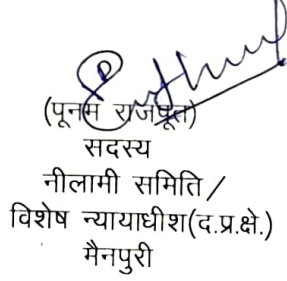 (पूनम राजपूत)
सदस्य
नीलामी समिति /
विशेष न्यायाधीश(द.प्र.क्षे.)
मैनपुरी